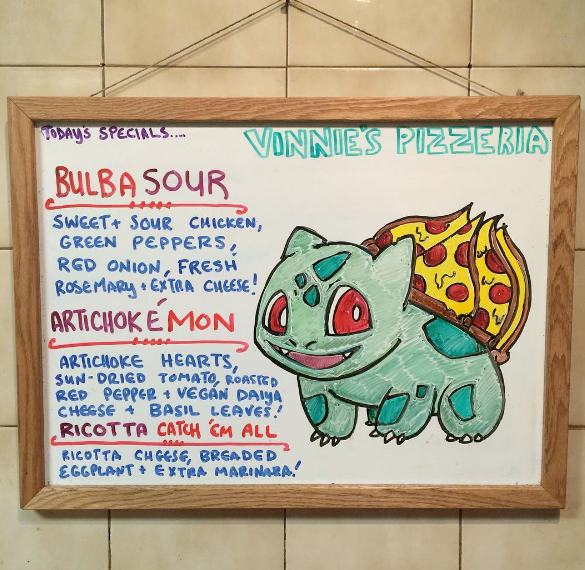 TODAY'S SPECIALS....
VINNIE'S PIZZERIA
BULBASOUR
SWEET + SOUR CHICKEN,
GREEN PEPPERS,
RED ONION, FRESH
ROSEMARY + EXTRA CHEESE!
ARTICHOKÉMON
ARTICHOKE HEARTS,
SUN-DRIED TOMATO, ROASTED
RED PEPPER + VEGAN DAIYA
CHEESE + BASIL LEAVES!
RICOTTA CATCH 'EM ALL
RICOTTA CHEESE, BREADED
EGGPLANT + EXTRA MARINARA!